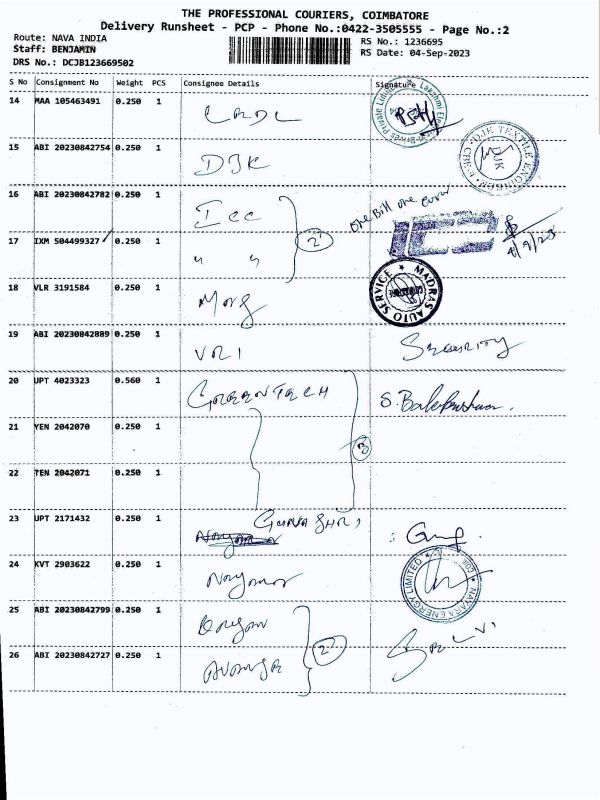 THE PROFESSIONAL COURIERS, COIMBATORE
Delivery Runsheet - PCP - Phone No.:0422-3505555 - Page No.:2
Route: NAVA INDIA
RS No.: 1236695
Staff: BENJAMIN
RS Date: 04-Sep-2023
DRS No.: DCJB123669502
S No Consignment No Weight PCS Consignee Details Signature
14 MAA 105463491 0.250 1 LRDL
15 ABI 20230842754 0.250 1 DJK
DJK TEXTILE ENGINEER
16 ABI 20230842782 0.250 1 Icc
one Bill one cover
2
17 IXM 504499327 0.250 1 " "
4/9/23
18 VLR 3191584 0.250 1
MADRAS AUTO SERVICE
19 ABI 20230842889 0.250 1 VRI Security
20 UPT 4023323 0.560 1 GREENTECH
21 YEN 2042070 0.250 1
3
22 TEN 2042071 0.250 1
23 UPT 2171432 0.250 1
24 KVT 2903622 0.250 1
NAYARA ENERGY LIMITED
25 ABI 20230842799 0.250 1
2
26 ABI 20230842727 0.250 1